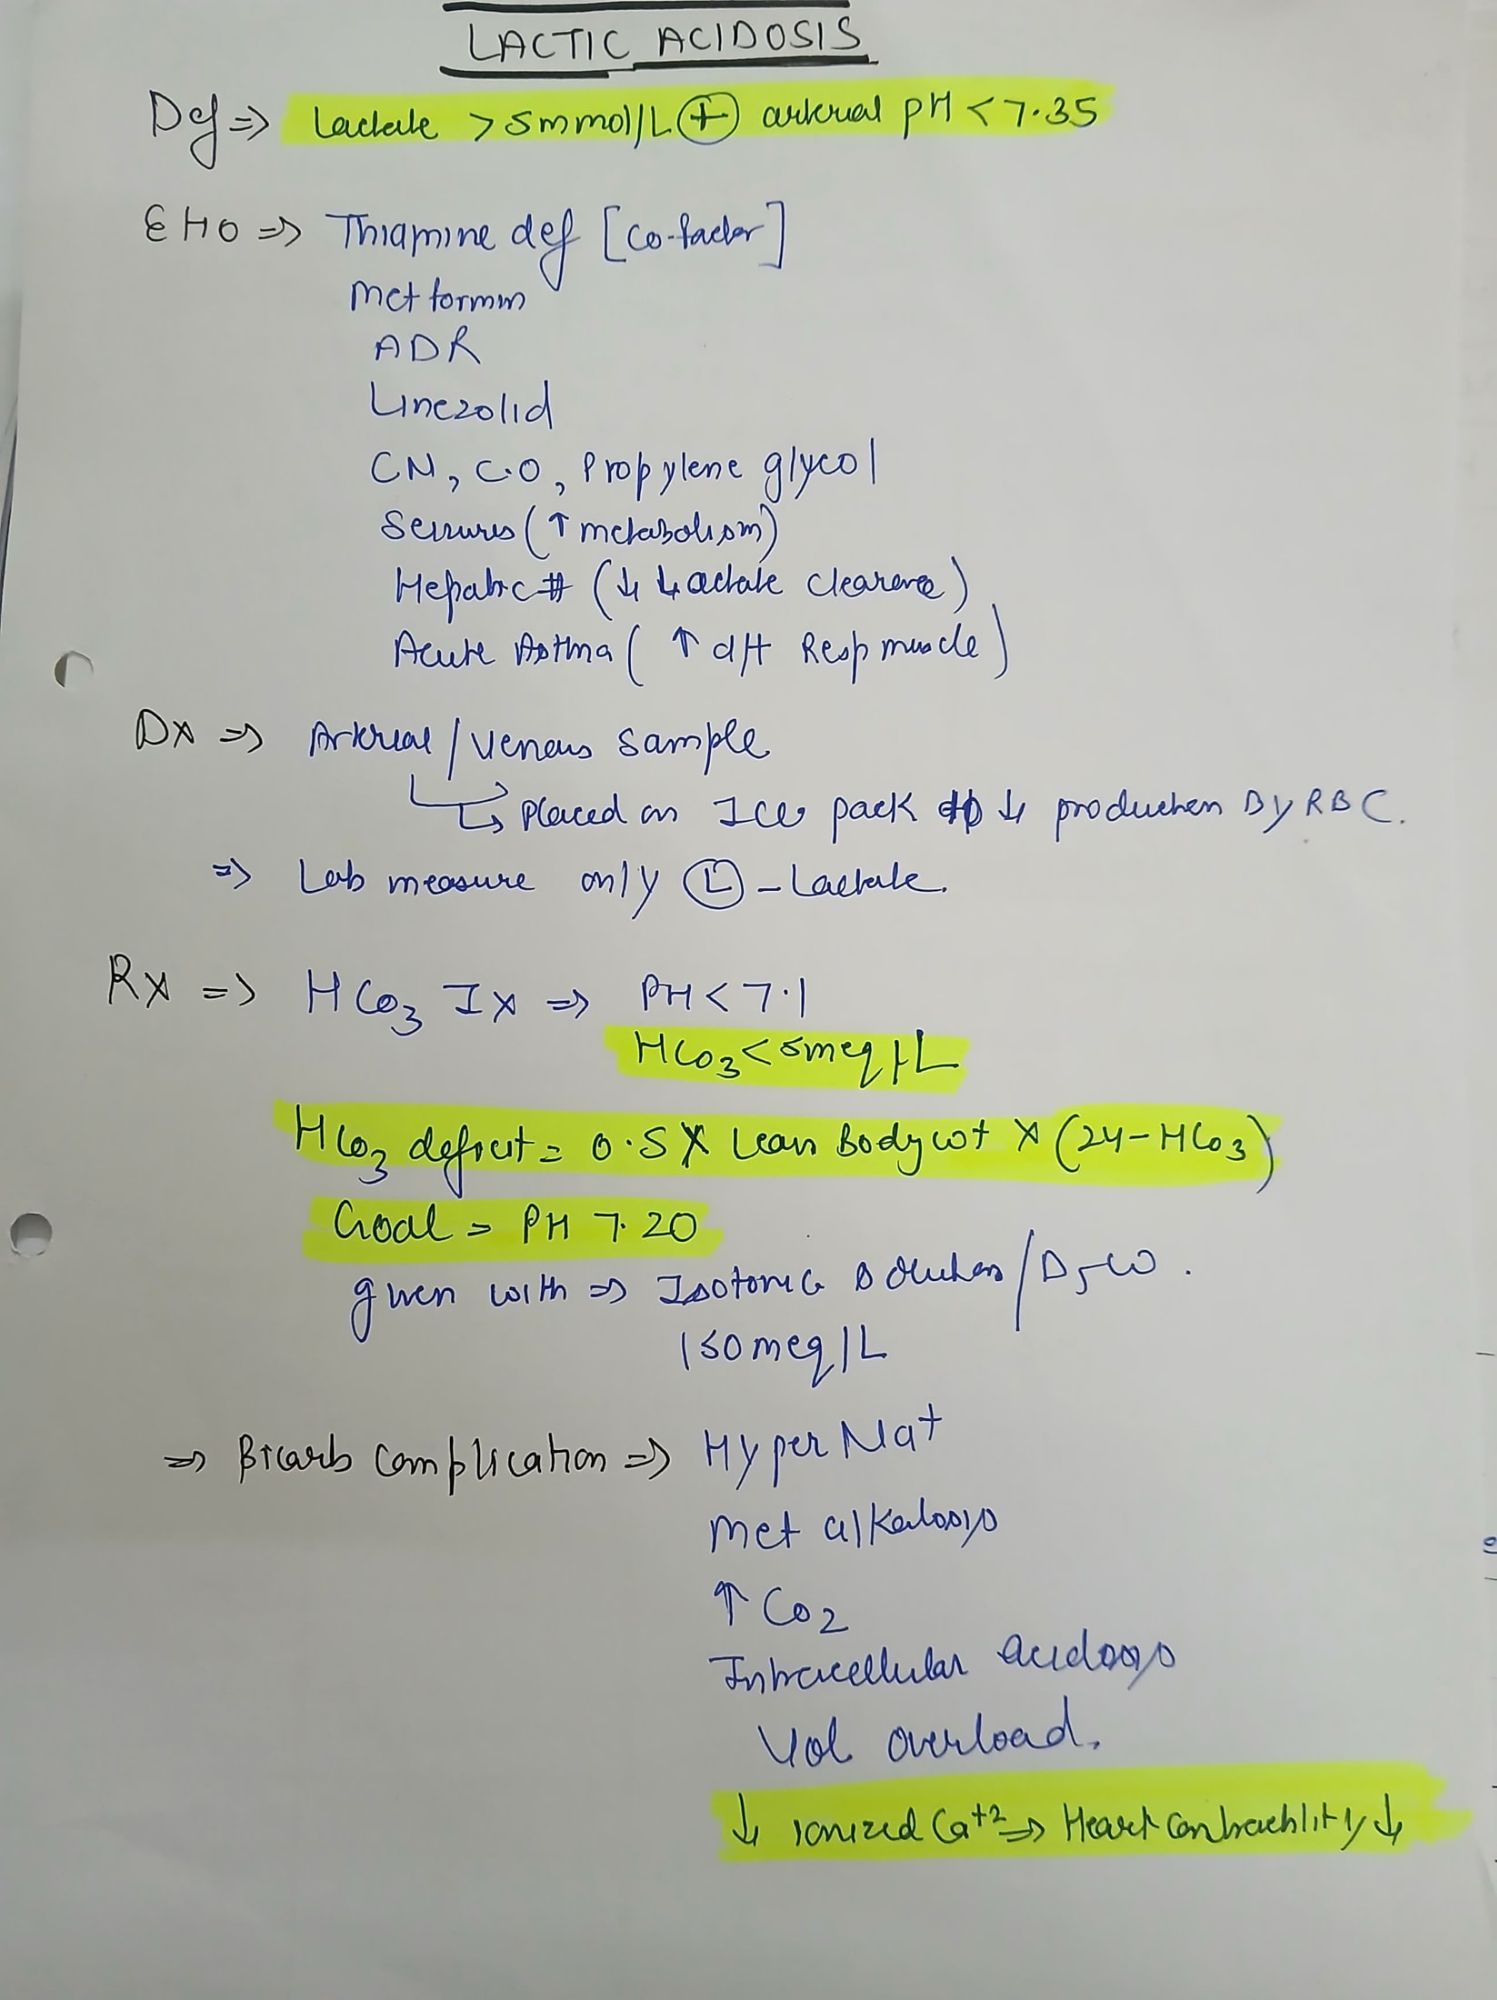 LACTIC ACIDOSIS
Def => Lactate > 5mmol/L ⊕ arterial pH < 7.35
EHO => Thiamine def [Co-factor]
Metformin
ADR
Linezolid
CN, CO, Propylene glycol
Seizures (↑ metabolism)
Hepatic # (↓ Lactate clearance)
Acute Asthma (↑ d/t Resp muscle)
Dx => Arterial / Venous sample
↳ Placed on Ice pack ↓ production By RBC.
=> Lab measure only Ⓛ - Lactate.
Rx => HCO3 Ix => PH < 7.1
HCO3 < 5meq/L
HCO3 deficit = 0.5 X Lean Body wt X (24-HCO3)
Goal = PH 7.20
given with => Isotonic solution / D5W.
150meq/L
=> Bicarb Complication => Hyper Na+
Met alkalosis
↑ CO2
Intracellular acidosis
Vol overload.
↓ ionized Ca+2 => Heart Contractility ↓